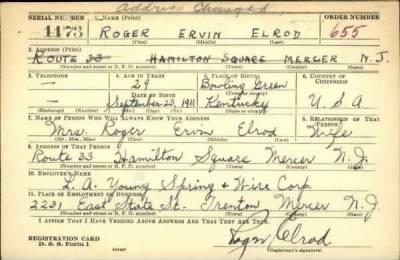 Address Changed
SERIAL NUMBER 1. NAME (Print) ORDER NUMBER
1173 ROGER ERVIN ELROD 655
(First) (Middle) (Last)
2. ADDRESS (Print)
ROUTE 33 HAMILTON SQUARE MERCER N.J.
(Number and street or R. F. D. number) (Town) (County) (State)
3. TELEPHONE 4. AGE IN YEARS 5. PLACE OF BIRTH 6. COUNTRY OF CITIZENSHIP
29 Bowling Green
DATE OF BIRTH (Town or county)
September 23, 1911 Kentucky U.S.A
(Exchange) (Number) (Mo.) (Day) (Yr.) (State or country)
7. NAME OF PERSON WHO WILL ALWAYS KNOW YOUR ADDRESS 8. RELATIONSHIP OF THAT PERSON
Mrs. Roger Ervin Elrod Wife
(Mr., Mrs., Miss) (First) (Middle) (Last)
9. ADDRESS OF THAT PERSON
Route 33 Hamilton Square Mercer N.J.
(Number and street or R. F. D. number) (Town) (County) (State)
10. EMPLOYER'S NAME
L. A. Young Spring + Wire Corp.
11. PLACE OF EMPLOYMENT OR BUSINESS
2231 East State St. Trenton Mercer N.J.
(Number and street or R. F. D. number) (Town) (County) (State)
I AFFIRM THAT I HAVE VERIFIED ABOVE ANSWERS AND THAT THEY ARE TRUE.
REGISTRATION CARD
D. S. S. Form 1
Roger Elrod
(Registrant's signature)